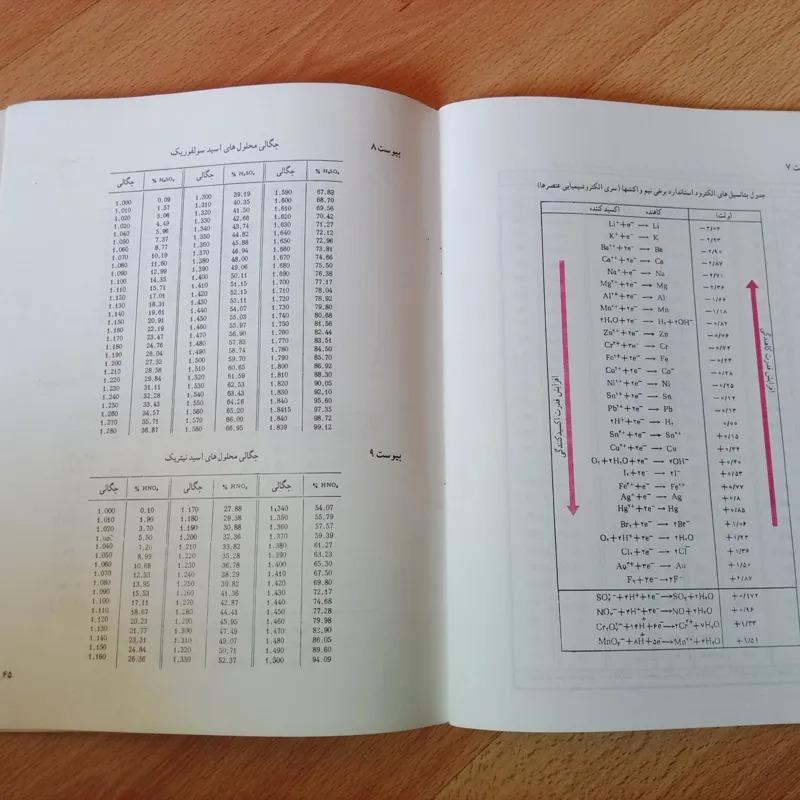 پیوست ۷
جدول پتانسیل های الکترود استاندارد برخی نیم واکنشها (سری الکتروشیمیایی عنصرها)
اکسیدکننده کاهنده (ولت)
Li⁺+e⁻ → Li −۳/۰۴
K⁺+e⁻ → K −۲/۹۳
Ba²⁺+۲e⁻ → Ba −۲/۹۰
Ca²⁺+۲e⁻ → Ca −۲/۸۷
Na⁺+e⁻ → Na −۲/۷۱
Mg²⁺+۲e⁻ → Mg −۲/۳۶
Al³⁺+۳e⁻ → Al −۱/۶۶
Mn²⁺+۲e⁻ → Mn −۱/۱۸
۲H₂O+۲e⁻ → H₂+۲OH⁻ −۰/۸۲
Zn²⁺+۲e⁻ → Zn −۰/۷۶
Cr³⁺+۳e⁻ → Cr −۰/۷۴
Fe²⁺+۲e⁻ → Fe −۰/۴۴
Co²⁺+۲e⁻ → Co −۰/۲۸
Ni²⁺+۲e⁻ → Ni −۰/۲۵
Sn²⁺+۲e⁻ → Sn −۰/۱۴
Pb²⁺+۲e⁻ → Pb −۰/۱۳
۲H⁺+۲e⁻ → H₂ ۰/۰۰
Sn⁴⁺+۲e⁻ → Sn²⁺ +۰/۱۵
Cu²⁺+۲e⁻ → Cu +۰/۳۴
O₂+۲H₂O+۴e⁻ → ۴OH⁻ +۰/۴۰
I₂+۲e⁻ → ۲I⁻ +۰/۵۳
Fe³⁺+e⁻ → Fe²⁺ +۰/۷۷
Ag⁺+e⁻ → Ag +۰/۸
Hg²⁺+۲e⁻ → Hg +۰/۸۵
Br₂+۲e⁻ → ۲Br⁻ +۱/۰۶
O₂+۴H⁺+۴e⁻ → ۲H₂O +۱/۲۳
Cl₂+۲e⁻ → ۲Cl⁻ +۱/۳۶
Au³⁺+۳e⁻ → Au +۱/۵۰
F₂+۲e⁻ → ۲F⁻ +۲/۸۷
SO₄²⁻+۴H⁺+۲e⁻ → SO₂+۲H₂O +۰/۱۷۲
NO₃⁻+۴H⁺+۳e⁻ → NO+۲H₂O +۰/۹۶
Cr₂O₇²⁻+۱۴H⁺+۶e⁻ → ۲Cr³⁺+۷H₂O +۱/۳۳
MnO₄⁻+۸H⁺+۵e⁻ → Mn²⁺+۴H₂O +۱/۵۱
افزایش قدرت اکسیدکنندگی
افزایش قدرت کاهندگی
پیوست ۸
چگالی محلول های اسید سولفوریک
چگالی % H₂SO₄ چگالی % H₂SO₄ چگالی % H₂SO₄
1.000 0.09 1.300 39.19 1.590 67.83
1.010 1.57 1.310 40.35 1.600 68.70
1.020 3.06 1.320 41.50 1.610 69.56
1.030 4.49 1.330 42.66 1.620 70.42
1.040 5.96 1.340 43.74 1.630 71.27
1.050 7.37 1.350 44.82 1.640 72.12
1.060 8.77 1.360 45.88 1.650 72.96
1.070 10.19 1.370 46.94 1.660 73.81
1.080 11.60 1.380 48.00 1.670 74.66
1.090 12.99 1.390 49.06 1.680 75.50
1.100 14.35 1.400 50.11 1.690 76.38
1.110 15.71 1.410 51.15 1.700 77.17
1.120 17.01 1.420 52.15 1.710 78.04
1.130 18.31 1.430 53.11 1.720 78.92
1.140 19.61 1.440 54.07 1.730 79.80
1.150 20.91 1.450 55.03 1.740 80.68
1.160 22.19 1.460 55.97 1.750 81.56
1.170 23.47 1.470 56.90 1.760 82.44
1.180 24.76 1.480 57.83 1.770 83.51
1.190 26.04 1.490 58.74 1.780 84.50
1.200 27.32 1.500 59.70 1.790 85.70
1.210 28.58 1.510 60.65 1.800 86.92
1.220 29.84 1.520 61.59 1.810 88.30
1.230 31.11 1.530 62.53 1.820 90.05
1.240 32.28 1.540 63.43 1.830 92.10
1.250 33.43 1.550 64.26 1.840 95.60
1.260 34.57 1.560 65.20 1.8415 97.35
1.270 35.71 1.570 66.09 1.840 98.72
1.280 36.87 1.580 66.95 1.839 99.12
پیوست ۹
چگالی محلول های اسید نیتریک
چگالی % HNO₃ چگالی % HNO₃ چگالی % HNO₃
1.000 0.10 1.170 27.88 1.340 54.07
1.010 1.90 1.180 29.38 1.350 55.79
1.020 3.70 1.190 30.88 1.360 57.57
1.030 5.50 1.200 32.36 1.370 59.39
1.040 7.26 1.210 33.82 1.380 61.27
1.050 8.99 1.220 35.28 1.390 63.23
1.060 10.68 1.230 36.78 1.400 65.30
1.070 12.33 1.240 38.29 1.410 67.50
1.080 13.95 1.250 39.82 1.420 69.80
1.090 15.53 1.260 41.36 1.430 72.17
1.100 17.11 1.270 42.87 1.440 74.68
1.110 18.67 1.280 44.41 1.450 77.28
1.120 20.23 1.290 45.95 1.460 79.98
1.130 21.77 1.300 47.49 1.470 82.90
1.140 23.31 1.310 49.07 1.480 86.05
1.150 24.84 1.320 50.71 1.490 89.60
1.160 26.36 1.330 52.37 1.500 94.09
۶۵